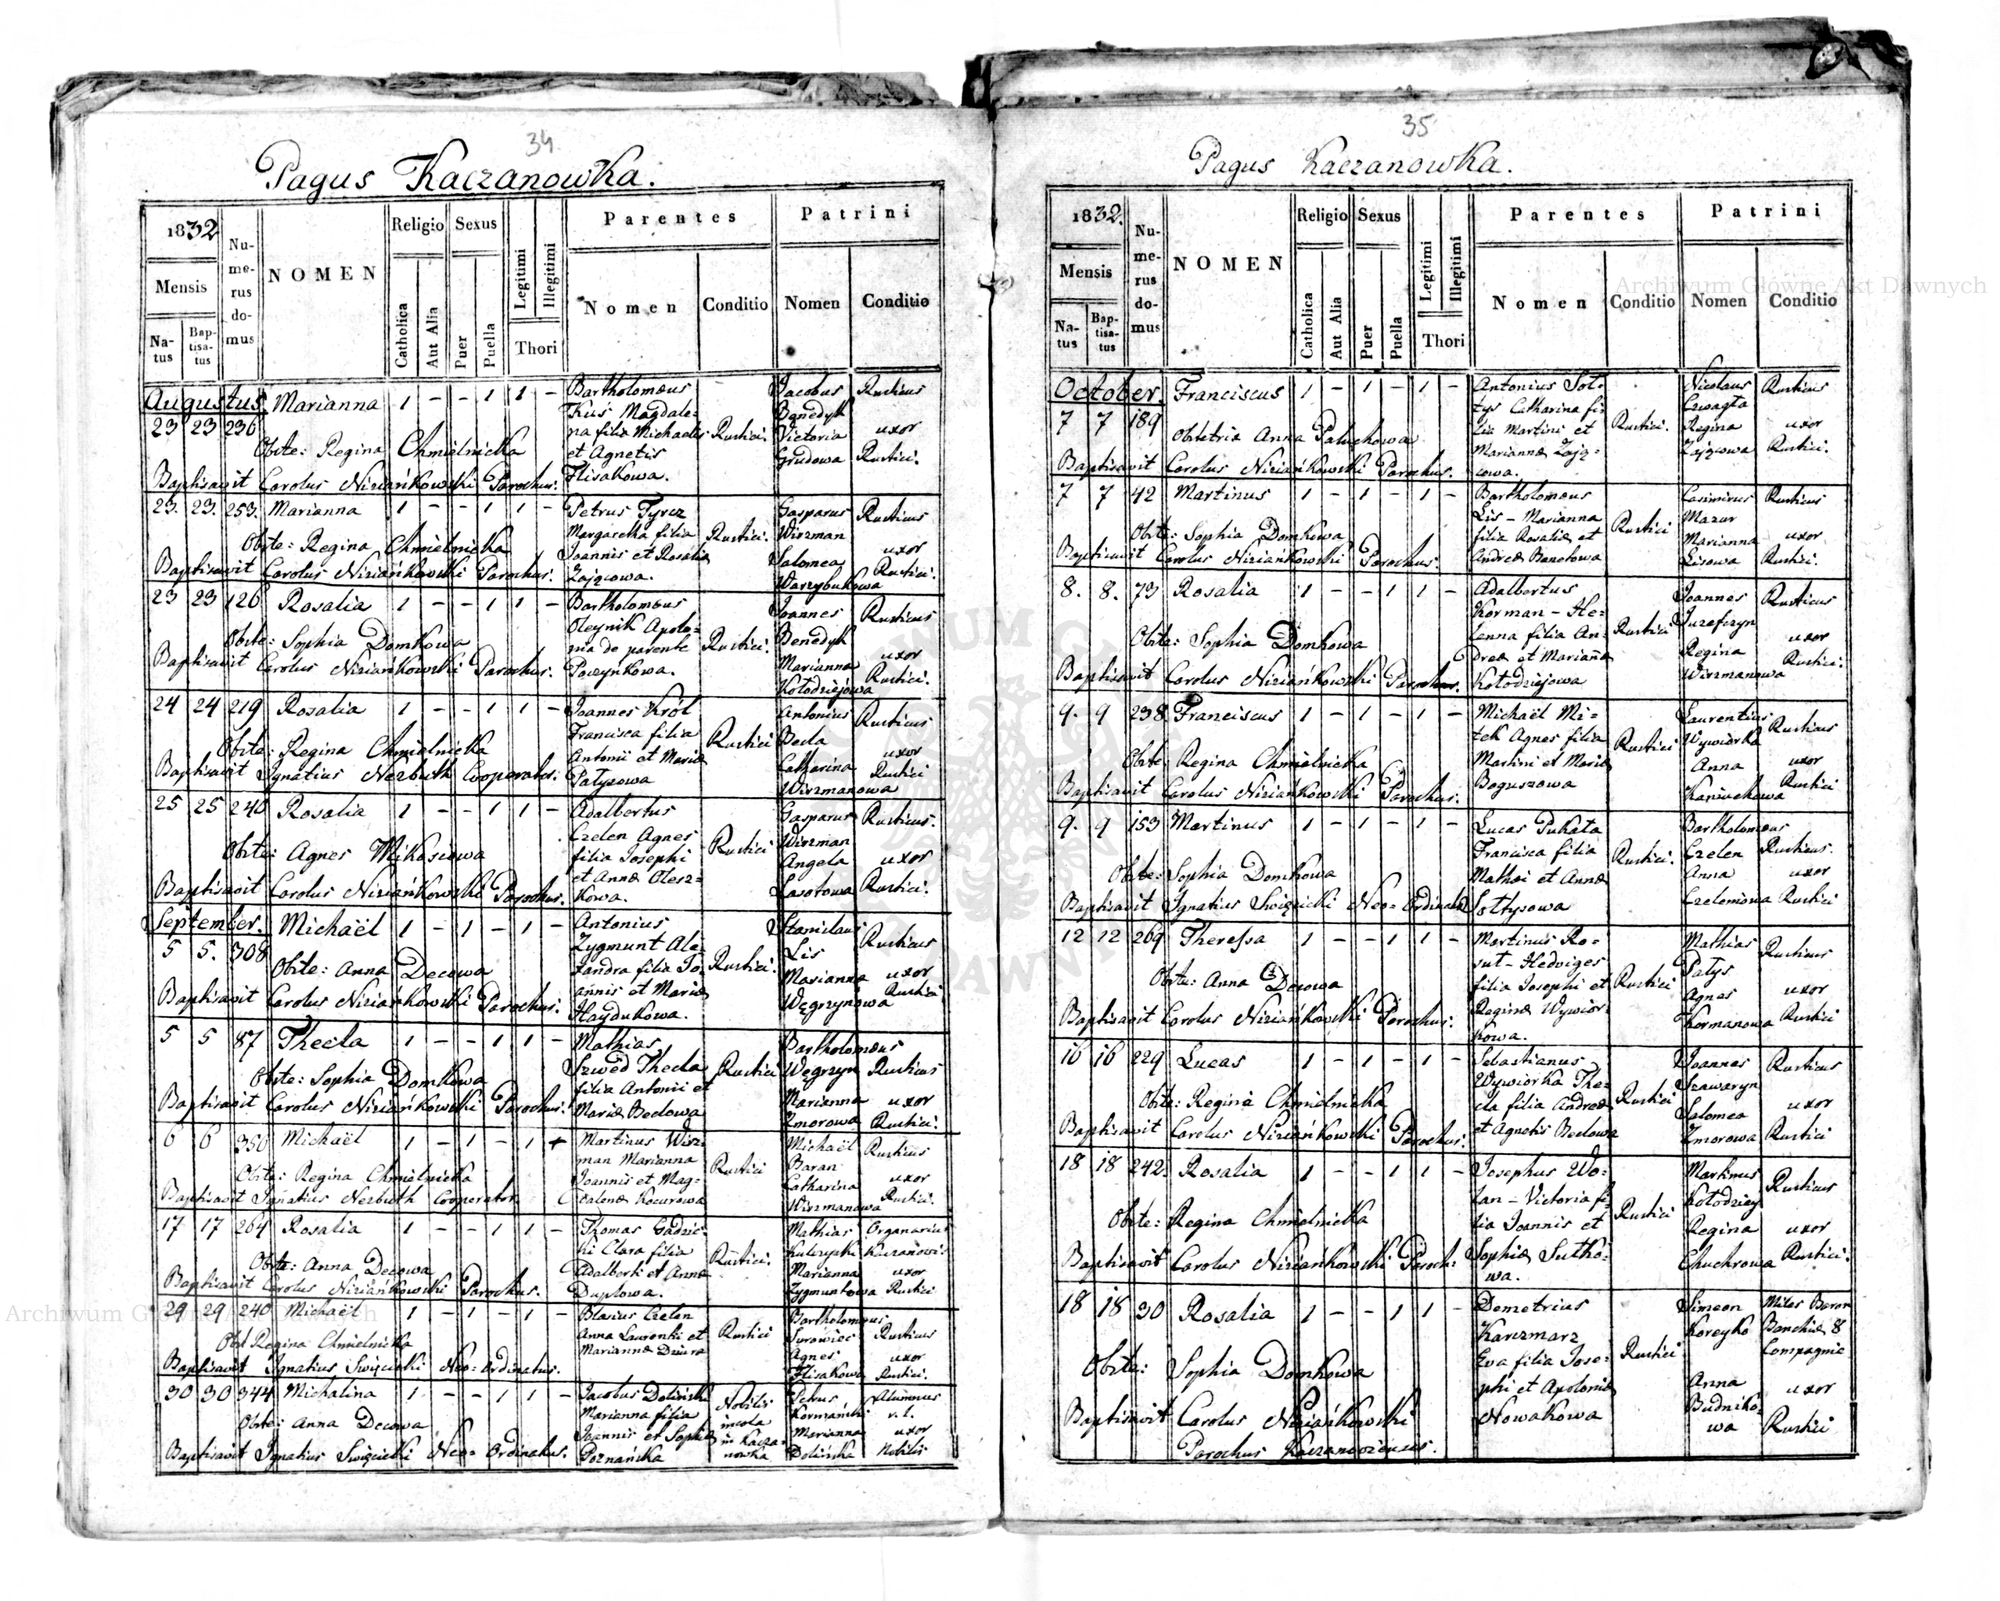 34
Pagus Kaczanowka.
1832
Mensis
Natus
Baptisatus
Numerus domus
NOMEN
Religio
Catholica
Aut Alia
Sexus
Puer
Puella
Legitimi
Illegitimi
Thori
Parentes
Nomen
Conditio
Patrini
Nomen
Conditio
Augustus. Marianna 1 - - 1 1 - Bartholomæus Jacobus Rusticus
23 23 236 Magdale= Benedyk
na filia Michaelis Rustici. Victoria uxor
Obste: Regina Chmielnicka et Agnetis Grudowa Rustici.
Baptisavit Carolus Niziańkowski Parochus. Flisakowa.
23. 23. 253. Marianna 1 - - 1 1 - Petrus Tyrcz Gasparus Rusticus
Margaretha filia Rustici. Wirzman
Obste: Regina Chmielnicka Joannis et Rosaliæ Salomea uxor
Baptisavit Carolus Niziańkowski Parochus. Zajączowa. Warzybukowa Rustici.
23 23 126 Rosalia 1 - - 1 1 - Bartholomæus Joannes Rusticus
Oleynik Apolo= Benedyk
Obste: Sophia Domkowa nia de parente Rustici. Marianna uxor
Baptisavit Carolus Niziańkowski Parochus. Poczynkowa. Kołodziejowa Rustici.
24 24 219 Rosalia 1 - - 1 1 - Joannes Król Antonius Rusticus
Francisca filia Rustici Becla
Obste: Regina Chmielnicka Antonii et Mariæ Catharina uxor
Baptisavit Ignatius Nerbuth Cooperator. Patysowa Wirzmanowa Rustici
25 25 240 Rosalia 1 - - 1 1 - Adalbertus Gasparus Rusticus.
Czelen Agnes Rustici Wirzman
Obste: Agnes Mikosiowa filia Josephi Angela uxor
et Annæ Olesz= Lasotowa Rustici.
Baptisavit Carolus Niziańkowski Parochus. kowa.
September. Michaël 1 - 1 - 1 - Antonius Stanislaus
5 5. 308 Zygmunt Ale= Lis Rusticus
Obste: Anna Decowa xandra filia Jo= Rustici. Marianna uxor
Baptisavit Carolus Niziańkowski Parochus. annis et Mariæ Węgrzynowa Rustici
Haydukowa.
5 5 87 Thecla 1 - - 1 1 - Mathias Bartholomæus
Szwed Thecla Rustici Węgrzyn Rusticus
Obste: Sophia Domkowa filia Antonii et Marianna uxor
Baptisavit Carolus Niziańkowski Parochus. Mariæ Beclowa Zmorowa Rustici.
6 6 350 Michaël 1 - 1 - 1 + Martinus Wirz= Michaël Rusticus
man Marianna Rustici Baran
Obste: Regina Chmielnicka Joannis et Mag= Catharina uxor
Baptisavit Ignatius Nerbuth Cooperator. dalenæ Kocurowa Wirzmanowa Rustici.
17 17 264 Rosalia 1 - - 1 1 - Thomas Gadzic= Mathias Organarius
ki Clara filia Rustici. Kulczycki
Obste: Anna Decowa Adalberti et Annæ Marianna uxor
Baptisavit Carolus Niziańkowski Parochus. Duplowa. Zygmuntowa Rustici
29 29 240 Michaël 1 - 1 - 1 - Blasius Czelen Bartholomæus
Obst Regina Chmielnicka Anna Laurenti et Rustici Surowiec Rusticus
Mariannæ Dziura Agnes uxor
Baptisavit Ignatius Święcicki Neo=ordinatus. Flisakowa Rustici.
30 30 344 Michalina 1 - - 1 1 - Jacobus Doliński Nobilis Petrus Alumnus
Marianna filia incola Kormański r. l.
Obste: Anna Decowa Joannis et Sophiæ in Kacza= Marianna uxor
Baptisavit Ignatius Święcicki Neo=Ordinatus. Poznańska nowka Dolińska Nobilis
35
Pagus Kaczanowka.
1832.
Mensis
Natus
Baptisatus
Numerus domus
NOMEN
Religio
Catholica
Aut Alia
Sexus
Puer
Puella
Legitimi
Illegitimi
Thori
Parentes
Nomen
Conditio
Patrini
Nomen
Conditio
October. Franciscus 1 - 1 - 1 - Antonius Soł= Nicolaus Rusticus
7 7 189 tys Catharina fi=
Obstetrix Anna Paluchowa lia Martini et Rustici. Regina uxor
Baptisavit Carolus Niziańkowski Parochus. Mariannæ Zają= Zajączowa Rustici.
cowa.
7 7 42 Martinus 1 - 1 - 1 - Bartholomæus Casimirus Rusticus
Lis - Marianna Rustici Mazur
Obste: Sophia Domkowa filia Rosaliæ et Marianna uxor
Baptisavit Carolus Niziańkowski Parochus. Andreæ Banetowa Lisowa Rustici.
8. 8. 73 Rosalia 1 - - 1 1 - Adalbertus Joannes Rusticus
Korman - He= Rustici Juzefczyn
Obste: Sophia Domkowa lenna filia An= Regina uxor
dreæ et Mariannæ Wirzmanowa Rustici.
Baptisavit Carolus Niziańkowski Parochus. Kołodziejowa
9. 9 238. Franciscus 1 - 1 - 1 - Michaël Mi= Laurentius
tek Agnes filia Rustici Wywiórka Rusticus
Obste: Regina Chmielnicka Martini et Mariæ Anna uxor
Baptisavit Carolus Niziańkowski Parochus. Boguszowa Kaniuckowa Rustici
9. 9 153 Martinus 1 - 1 - 1 - Lucas Pukała Bartholomæus
Francisca filia Rustici. Czelen Rusticus.
Obste: Sophia Domkowa Mathæi et Annæ Anna uxor
Baptisavit Ignatius Święcicki Neo=Ordinatus Sołtysowa Czelemowa Rustici
12 12 269 Theressa 1 - - 1 1 - Martinus Ko= Mathias Rusticus
sut - Hedviges Patys
Obste: Anna Decowa filia Josephi et Rustici Agnes uxor
Baptisavit Carolus Niziańkowski Parochus. Reginæ Wywiór Kormanowa Rustici
kowa.
16 16 229 Lucas 1 - 1 - 1 - Sebastianus Joannes Rusticus
Wywiórka The= Rustici Szawaryn
Obste: Regina Chmielnicka cla filia Andreæ Salomea uxor
Baptisavit Carolus Niziańkowski Parochus. et Agnetis Beclowa Zmorowa Rustici
18 18 242. Rosalia 1 - - 1 1 - Josephus Wo= Martinus Rusticus
lan - Victoria fi= Rustici Kołodziey
Obste: Regina Chmielnicka lia Joannis et Regina uxor
Baptisavit Carolus Niziańkowski Paroch: Sophiæ Sutko= Chuchrowa Rustici.
wa.
18 18 30 Rosalia 1 - - 1 1 - Demetrius Simeon Miles Baron
Karczmarz Koreyko Banchiæ 8
Eva filia Jose= Rustici Compagniæ
Obste: Sophia Domkowa phi et Apoloniæ Anna uxor
Baptisavit Carolus Niziańkowski Nowakowa Budniko=
Parochus Kaczanoviensis. wa Rustici
Archiwum Główne Akt Dawnych
Archiwum Główne Akt Dawnych